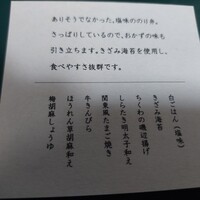 ありそうでなかった、塩味ののり弁。
さっぱりしているので、おかずの味も
引き立ちます。きざみ海苔を使用し、
食べやすさ抜群です。
白ごはん(塩味)
きざみ海苔
ちくわの磯辺揚げ
しらたき明太子和え
関東風たまご焼き
牛きんぴら
ほうれん草胡麻和え
梅胡麻しょうゆ